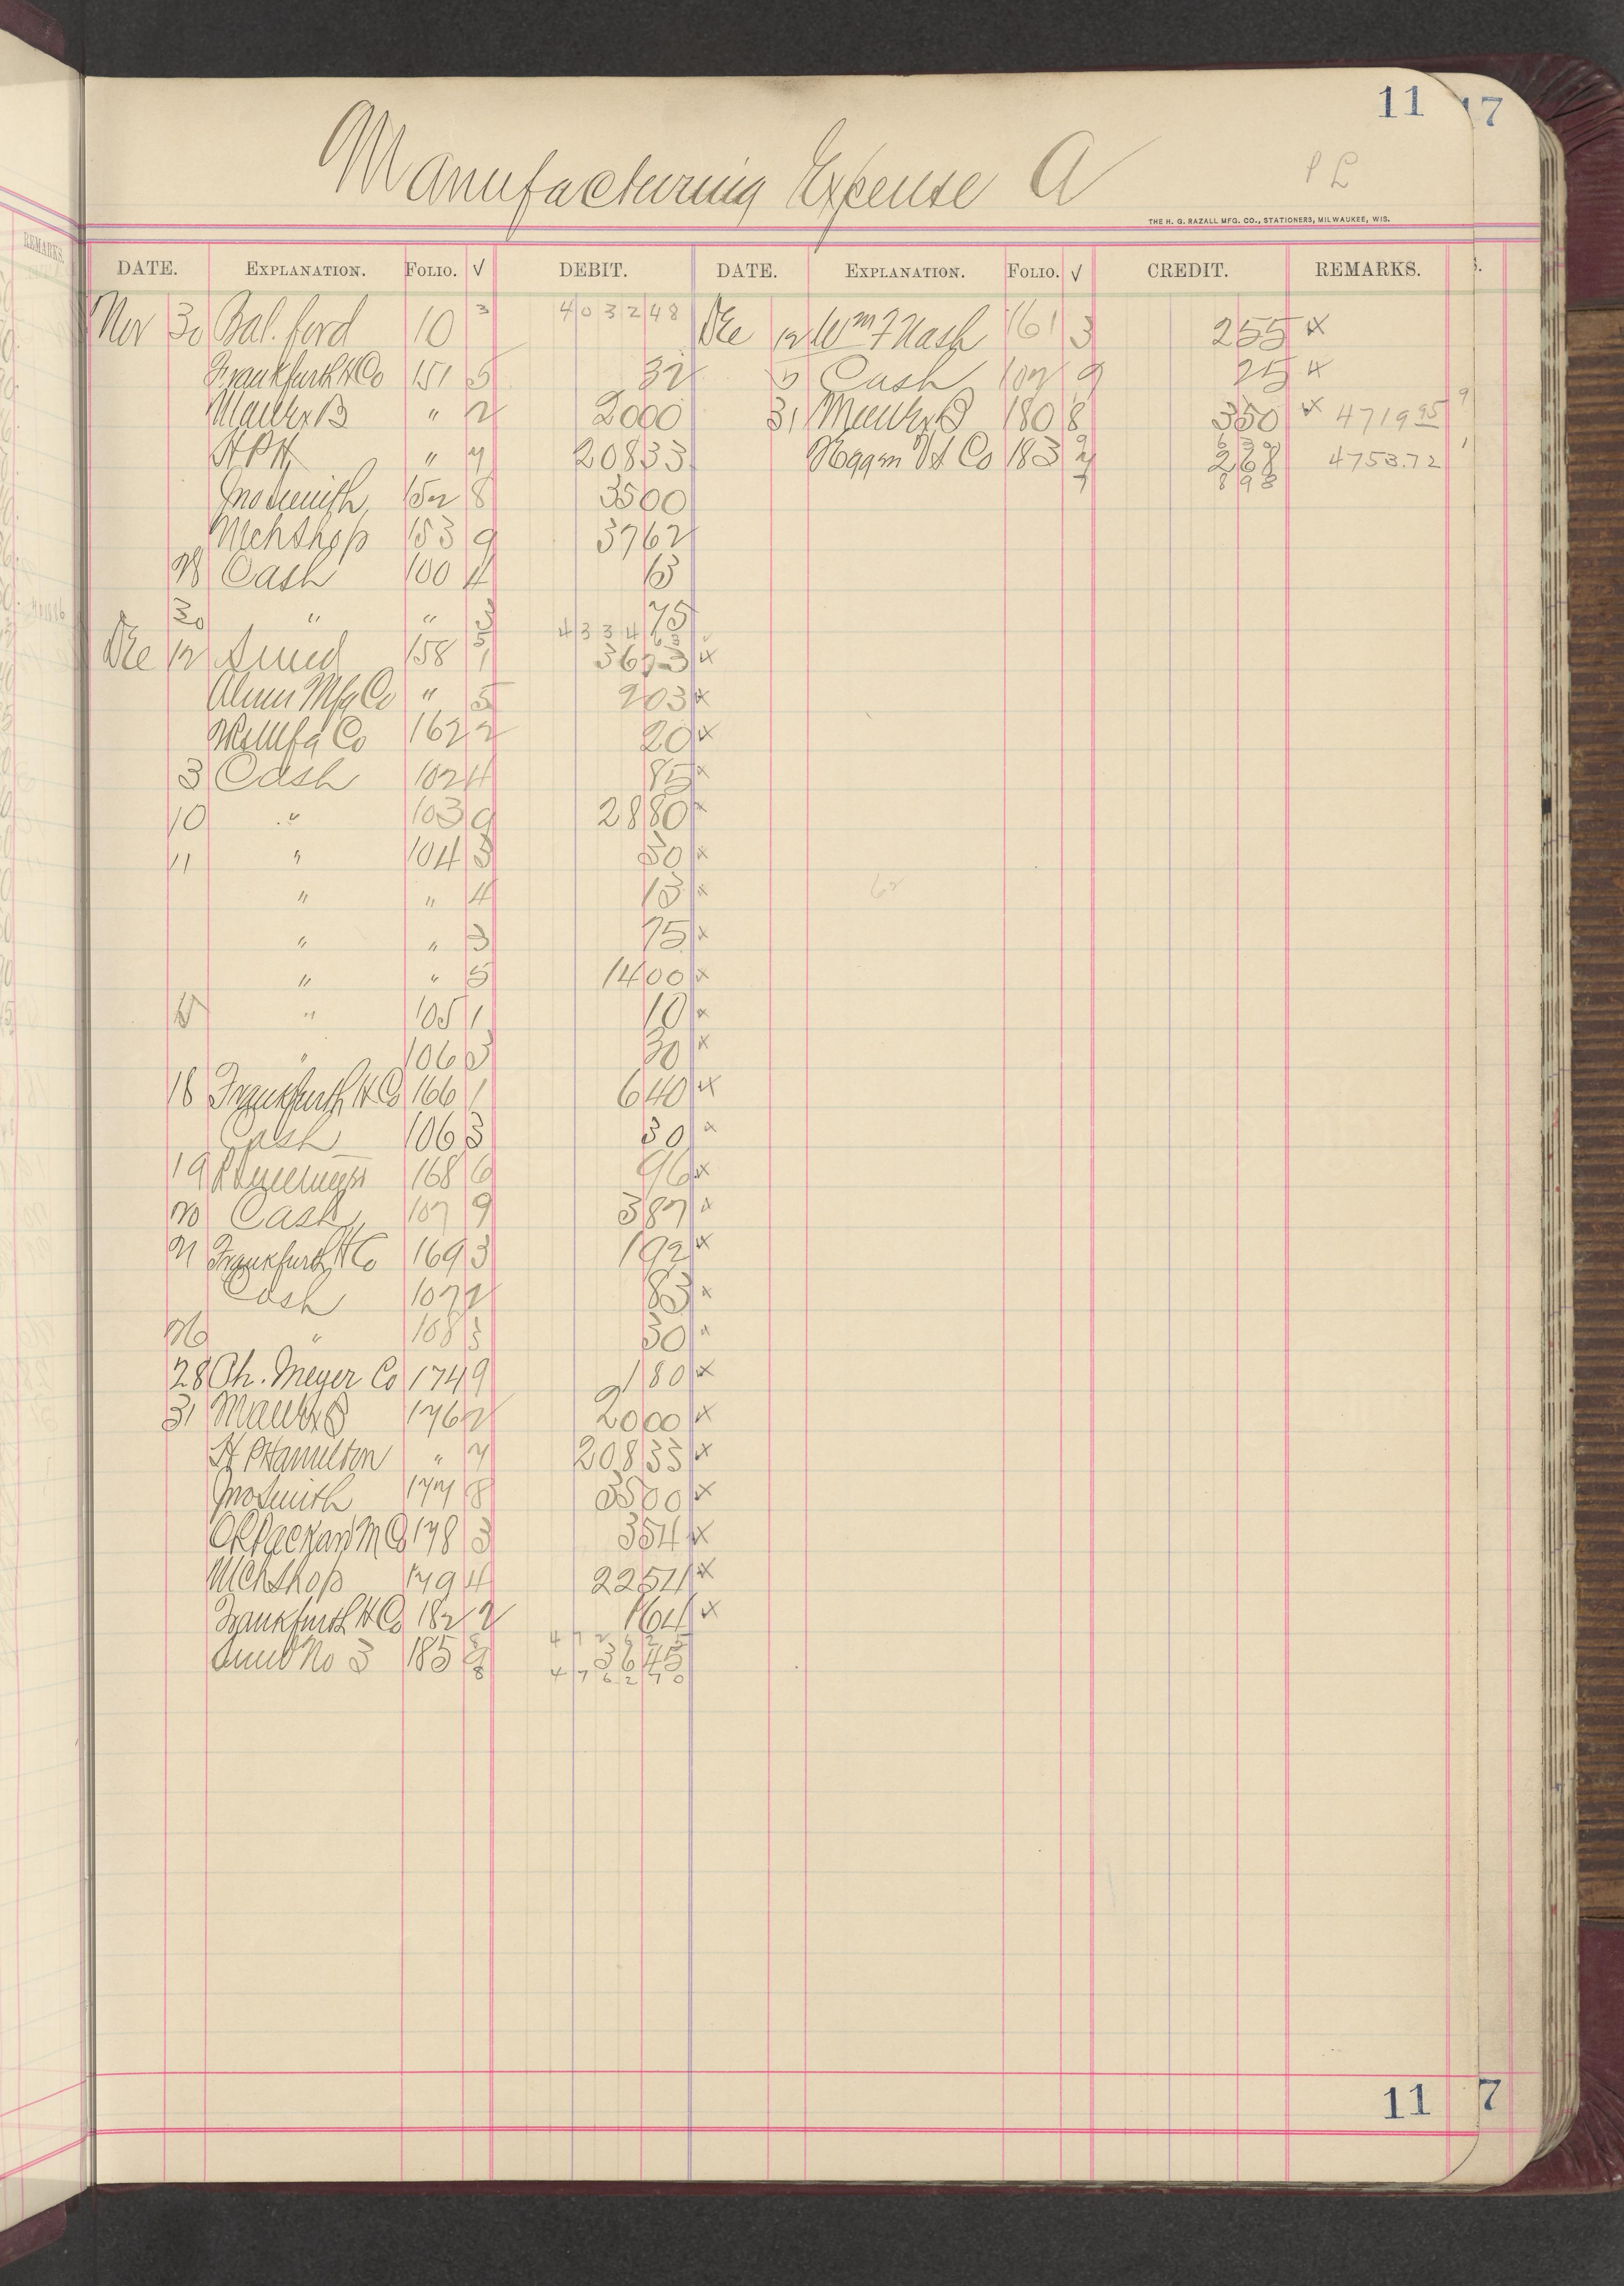 11 17
Manufacturing Expense A
P L
THE H. G. RAZALL MFG. CO., STATIONERS, MILWAUKEE, WIS.
REMARKS.
DATE. EXPLANATION. FOLIO. √ DEBIT. DATE. EXPLANATION. FOLIO. √ CREDIT. REMARKS.
Nov 30 Bal. ford 10 3 4032 48 Dec 12 Wm F Nash 161 3 2 55 x
Frankfurth H Co 151 5 32 5 Cash 102 9 25 x
" 2 20 00 31 180 8 3 50 x 4719 95 9
H P H " 7 208 33 Co 183 2 68 4753.72 1
6 30
8 98
Jno Smith 152 8 35 00
Mch Shop 153 9 37 62
28 Cash 100 4 13
30 " " 3 75
4334 63
Dec 12 158 1 36 23 x
Alum Mfg Co " 5 2 03 x
Mfg Co 162 2 20 x
3 Cash 102 4 85 x
10 " 103 9 28 80 x
11 " 104 3 30 x
" " 4 13 x 62
" " 3 75 x
" " 5 14 00 x
15 " 105 1 10 x
" 106 3 30 x
18 Frankfurth H Co 166 1 6 40 x
Cash 106 3 30 x
19 168 6 96 x
20 Cash 107 9 3 87 x
21 Frankfurth H Co 169 3 1 92 x
Cash 107 2 83 x
26 " 108 3 30 x
28 Ph. Meyer Co 174 9 1 80 x
31 176 2 20 00 x
H P Hamilton " 7 208 33 x
Jno Smith 177 8 35 00 x
178 3 3 54 x
Mch Shop 179 4 22 54 x
Frankfurth H Co 182 2 1 64 x
4726 25
No 3 185 9 36 45
8 4762 70
11 7